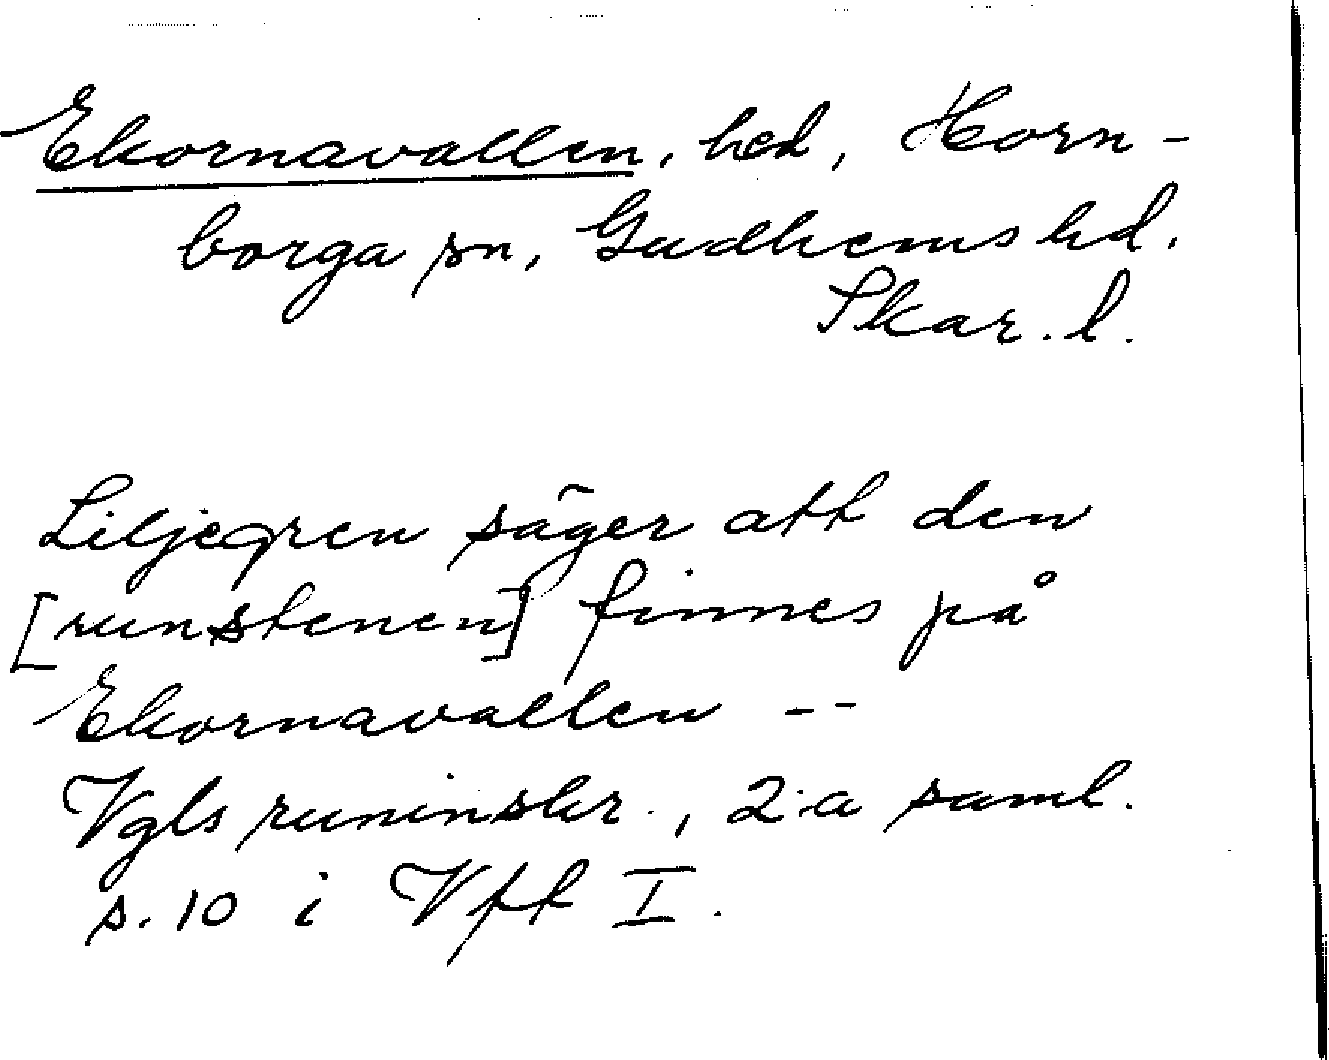 Ekornavallen, hed, Horn-
borga sn, Gudhems hd.
Skar. l.
Liljegren säger att den
[runstenen] finnes på
Ekornavallen --
Vgls runinskr., 2.a saml.
s. 10 i Vft I.